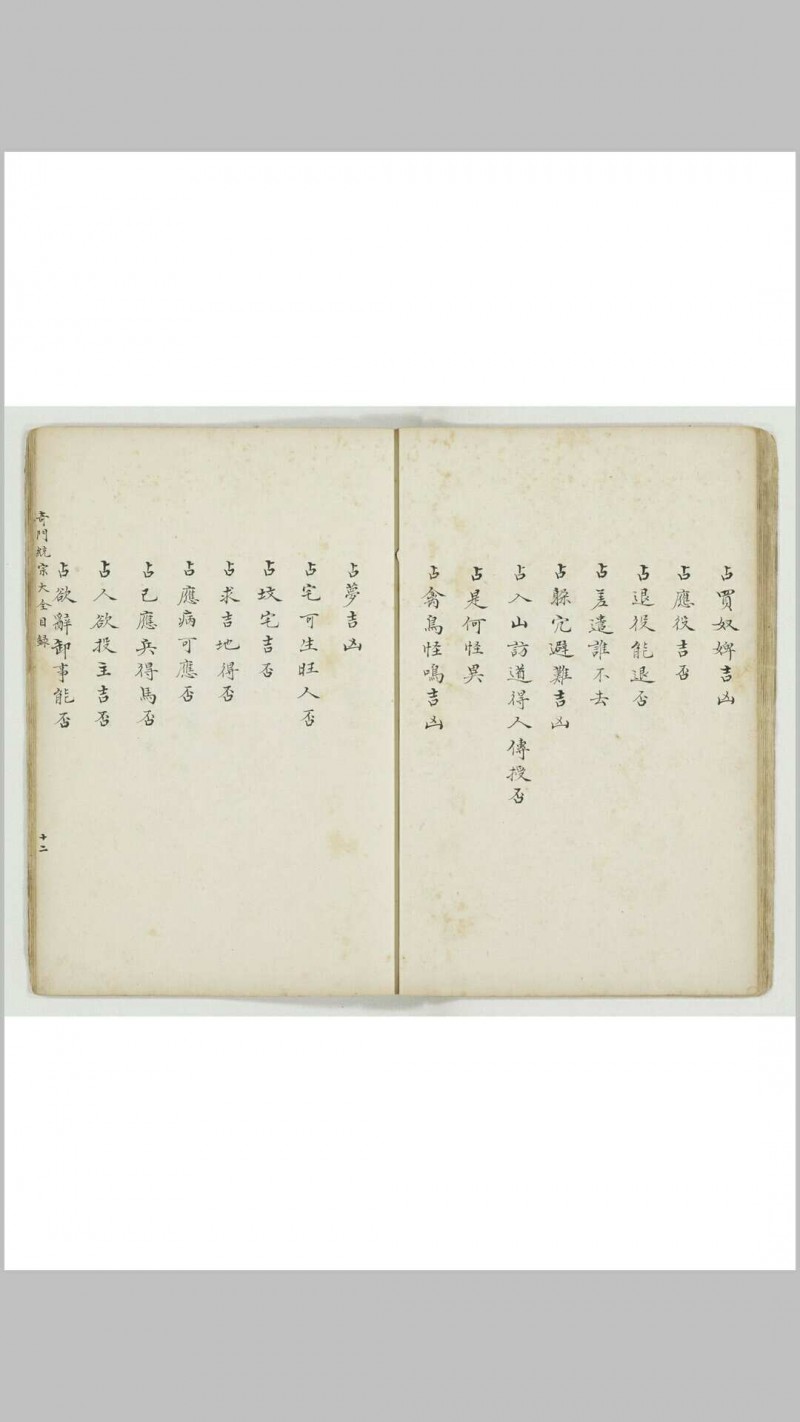 占買奴婢吉凶
占應役吉否
占退役能退否
占差遣誰不去
占躲宄避難吉凶
占入山訪道得人傳授否
占是何怪異
占禽鳥怪鳴吉凶
占夢吉凶
占宅可生旺人否
占坟宅吉否
占求吉地得否
占應病可應否
占已應兵得馬否
占人欲投主吉否
占欲辭卸事能否
奇門統宗大全目錄
十二